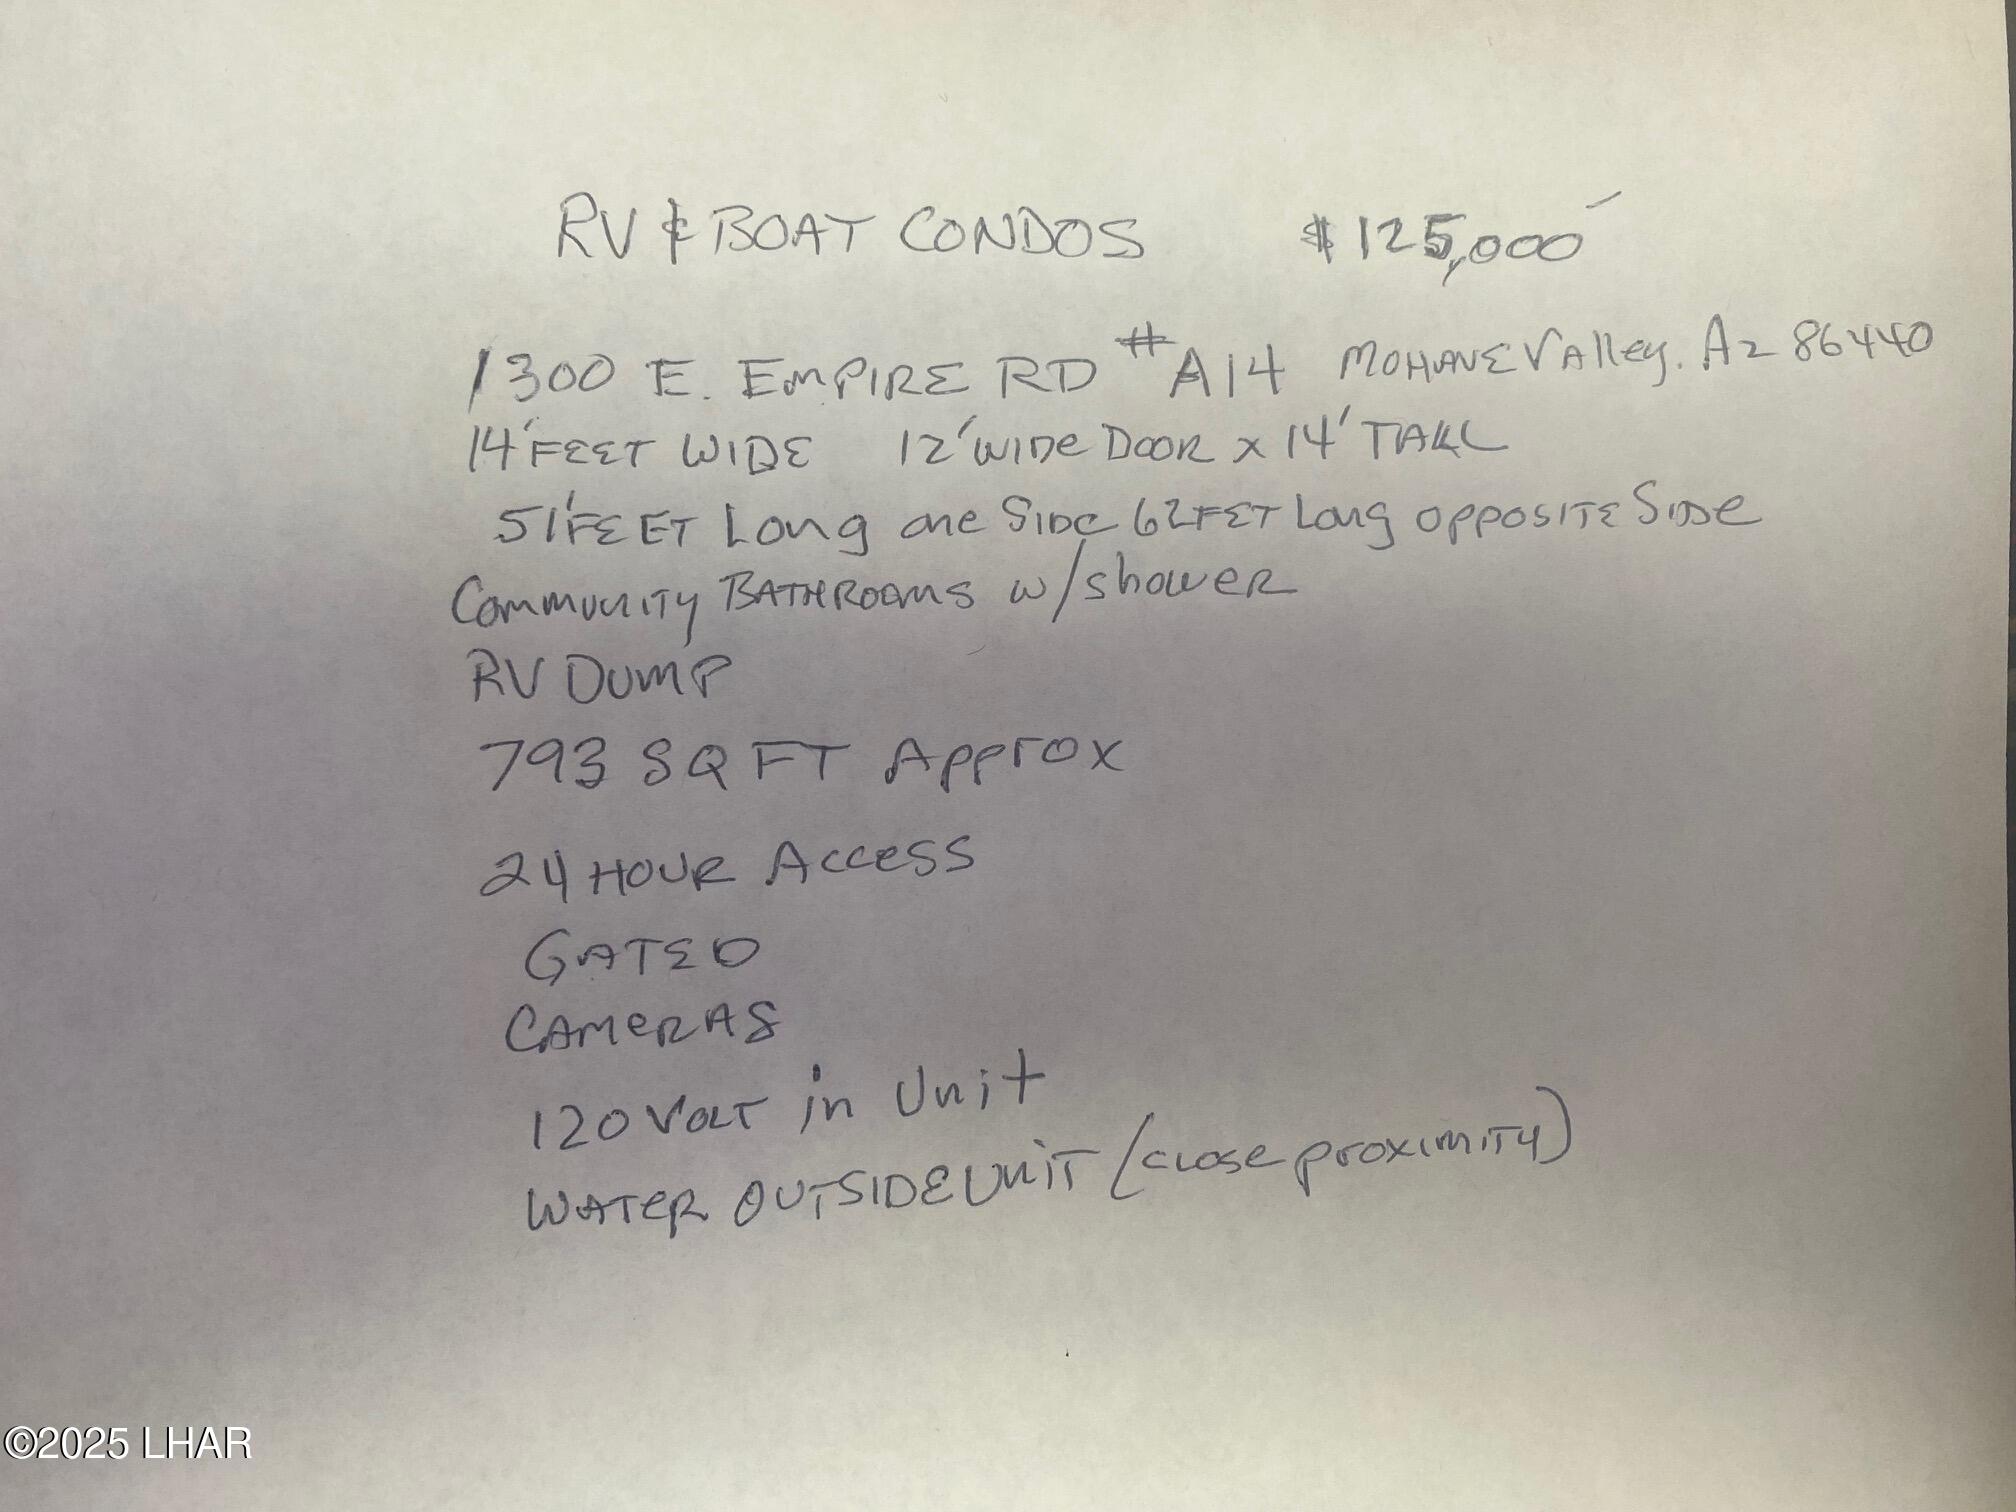 RV & BOAT CONDOS $125,000
1300 E. EMPIRE RD #A14 MOHAVE VAlley. Az 86440
14' FEET WIDE 12' WIDE DOOR x 14' TALL
51' FEET Long one SIDE 62 FET Long OPPOSITE SIDE
Community BATHROOMS w/shower
RV DUMP
793 SQ FT Approx
24 HOUR Access
GATED
CAMERAS
120 VOLT in Unit
WATER OUTSIDE UNIT (close proximity)
©2025 LHAR